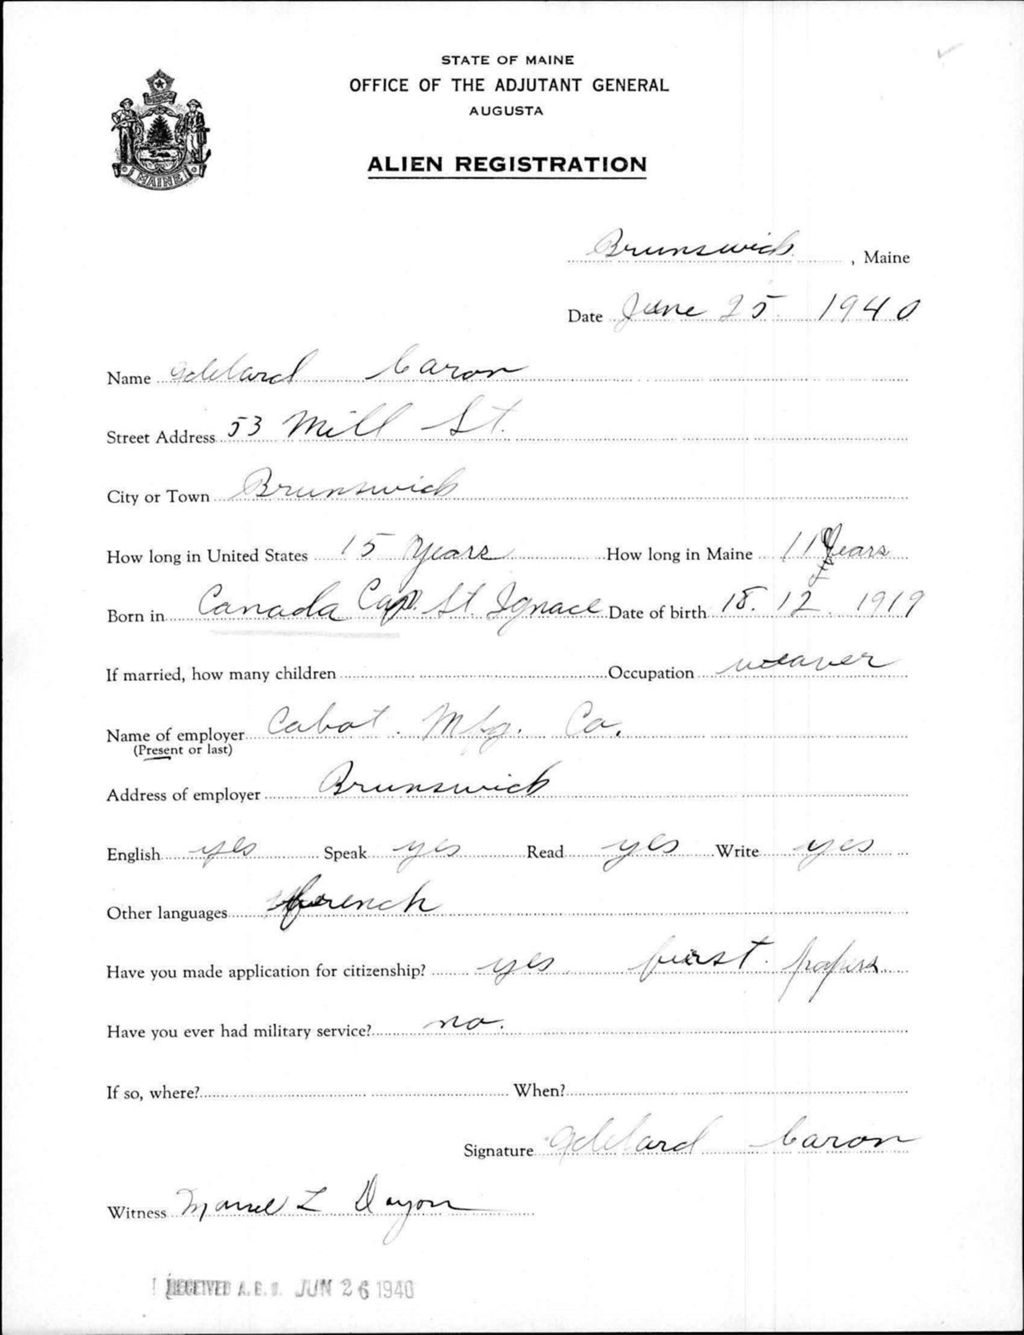 STATE OF MAINE
OFFICE OF THE ADJUTANT GENERAL
AUGUSTA
ALIEN REGISTRATION
MAINE
Brunswick, Maine
Date June 25. 1940
Name Caron
Street Address 53 Mill St.
City or Town Brunswick
How long in United States 15 Years How long in Maine 11 Years
Born in Canada Cap. St Ignace Date of birth 18. 12. 1919
If married, how many children Occupation weaver
Name of employer Cabot. Mfg. Co.
(Present or last)
Address of employer Brunswick
English yes Speak yes Read yes Write yes
Other languages french
Have you made application for citizenship? yes first. papers
Have you ever had military service? no.
If so, where? When?
Signature Caron
Witness L
RECEIVED A. G. O. JUN 26 1940